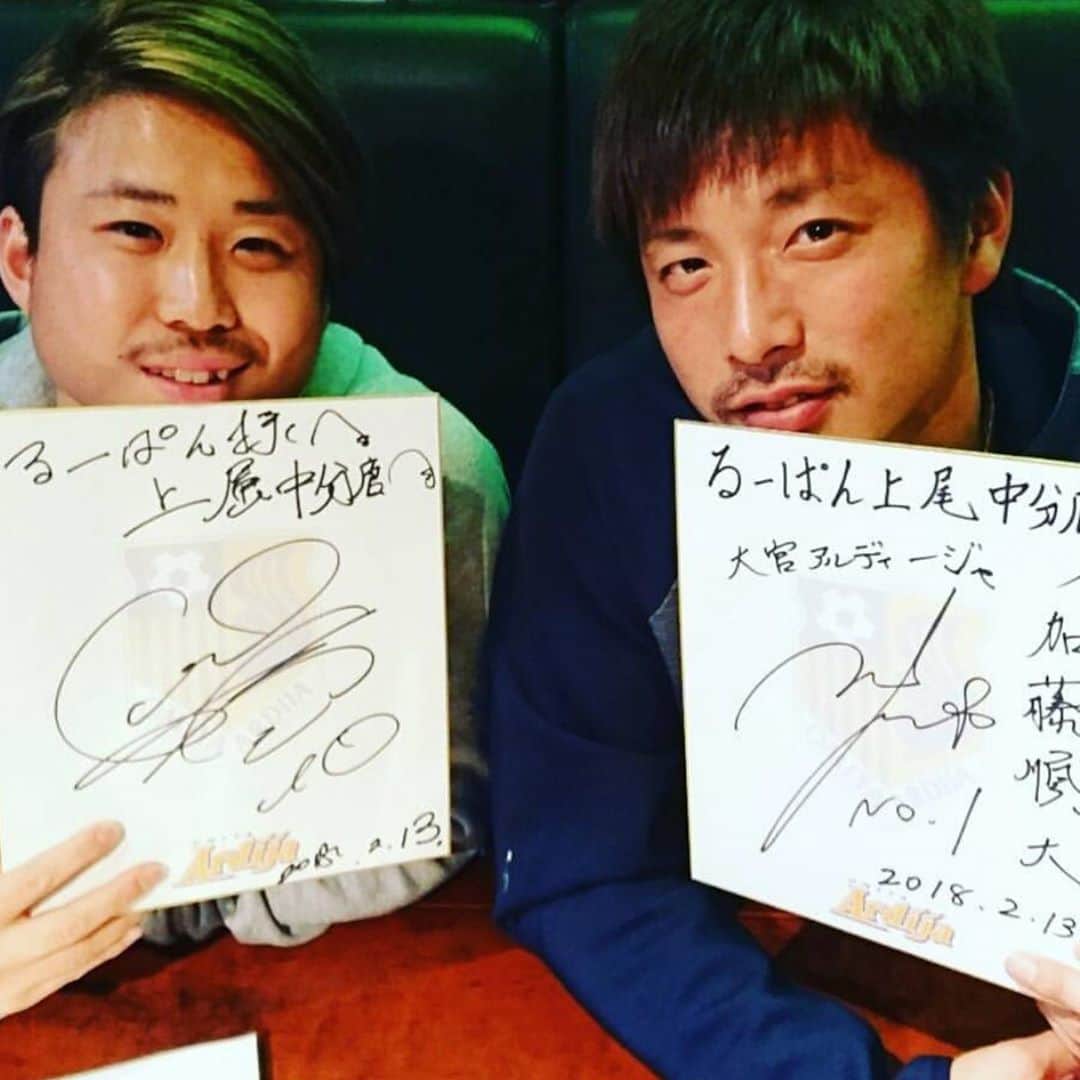 るーぱん様へ。
上尾中分店へ
10
2018.2.13.
Ardija
るーぱん上尾中分店
大宮アルディージャ
加藤順大
NO.1
2018.2.13
Ardija